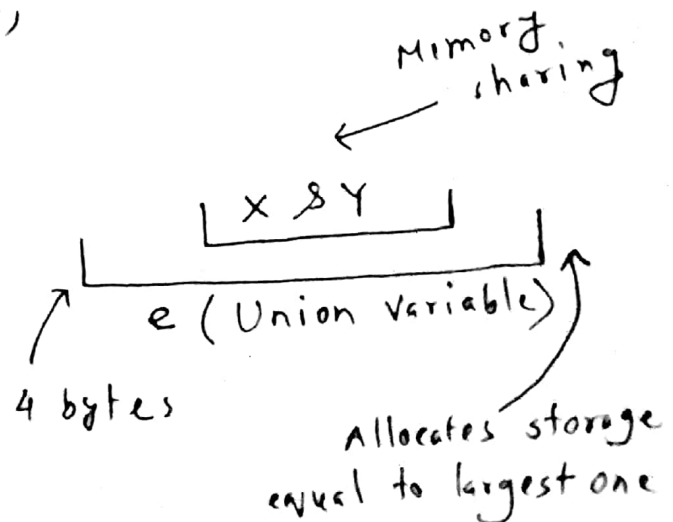 )
Mimory
sharing
X & Y
e (Union Variable)
4 bytes
Allocates storage
equal to largest one